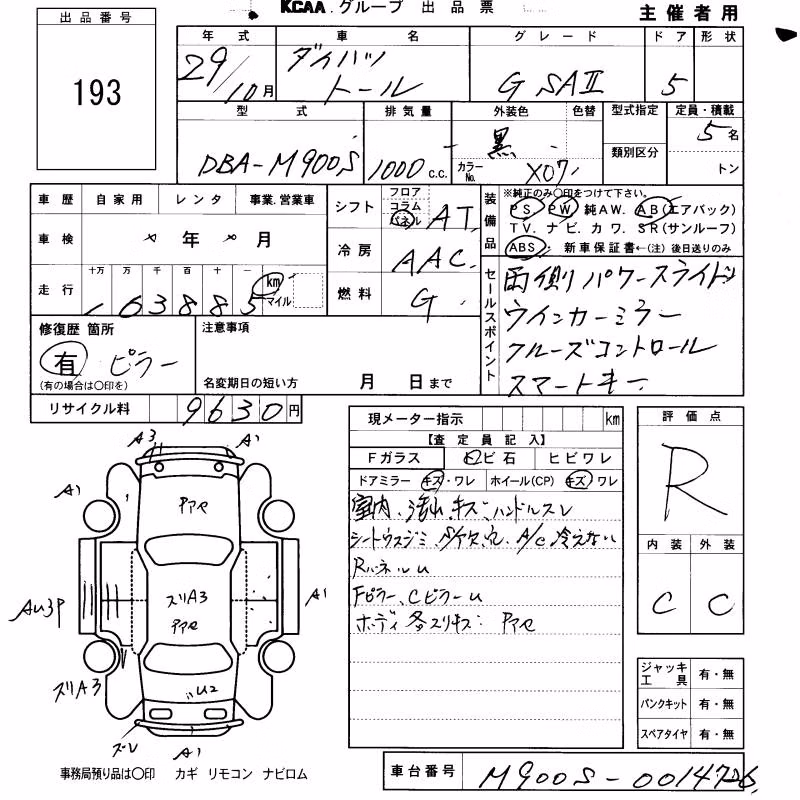 KCAA.グループ 出品票
主催者用
出品番号
193
年式 車名 グレード ドア 形状
29/10月 ダイハツ トール G SAⅡ 5
型式 排気量 外装色 色替 型式指定 定員・積載
DBA-M900S 1000 c.c. 黒 カラーNo. X07 類別区分 5名
トン
車歴 自家用 レンタ 事業.営業車
車検 年 月
走行 十万 万 千 百 十 一
163885 km マイル
シフト フロア コラム パネル AT
冷房 AAC
燃料 G
装備品
※純正のみ〇印をつけて下さい。
PS PW 純AW. AB(エアバック)
TV. ナビ. カワ. SR(サンルーフ)
ABS. 新車保証書←(注) 後日送りのみ
セールスポイント
両側パワースライド
ウインカーミラー
クルーズコントロール
スマートキー
修復歴 箇所
有 ピラー
(有の場合は〇印を)
注意事項
名変期日の短い方 月 日まで
リサイクル料 9630円
現メーター指示 km
【査定員記入】
Fガラス ヒビ石 ヒビワレ
ドアミラー キズ・ワレ ホイール(CP) キズ ワレ
室内、汚れ、キズ、ハンドルスレ
A/C冷えない
RパネルU
Fピラー、CピラーU
評価点
R
内装 外装
C C
ジャッキ工具 有・無
パンクキット 有・無
スペアタイヤ 有・無
A3 A1
A1
アセ
AU3P スリA3 A1
アセ
ズリA3 U2
ズレ A1
事務局預り品は〇印 カギ リモコン ナビロム
車台番号 M900S-0014726